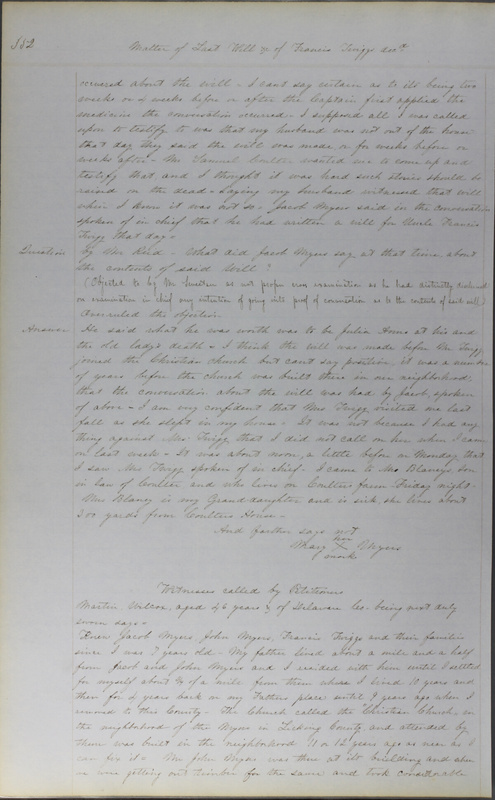 552
Matter of Last Will &c of Francis Twiggs decd
occurred about the will - I cant say certain as to its being two
weeks or 4 weeks before or after the Captain first applied the
medicine the conversation occurred - I supposed all I was called
upon to testify to was that my husband was not out of the house
that day they said the will was made or for weeks before or
weeks after - Mr Samuel Coulter wanted me to come up and
testify that and I thought it was hard such stories should be
raised on the dead - Saying my husband witnessed that will
when I knew it was not so - Jacob Myers said in the conversation
spoken of in chief that he had written a will for Uncle Francis
Twigg that day -
Question By Mr Reid - What did Jacob Myers say at that time about
the contents of said Will?
(Objected to by Mr as not proper cross examination as he had distinctly
on examination in chief any intention of going into proof of conversation as to the contents of said will)
Overruled the objection
Answer He said what he was worth was to be Julia Anns at his and
the old ladys death - I think the will was made before Mr Twigg
joined the Christian church but cant say positive, it was a number
of years before the church was built there in our neighborhood
that the conversation about the will was had by Jacob, spoken
of above - I am very confident that Mrs Twigg visited me last
fall as she slept in my house - It was not because I had any
thing against Mrs Twigg that I did not call on her when I came
on last week - It was about noon, a little before on Monday that
I saw Mrs Twigg spoken of in chief - I came to Mr Blaneys son
in law of Coulter and who lives on Coulters farm Friday night -
Mrs Blaney is my Grand daughter and is sick, she lives about
200 yards from Coulters House -
And further says not
her
Mary X Myers
mark
Witnesses called by Petitioners
Martin Wilcox, aged 46 years of Delaware Co. being next duly
sworn says -
Knew Jacob Myers, John Myers, Francis Twiggs and their families
since I was 7 years old - My father lived about a mile and a half
from Jacob and John Myers and I resided with him until I settled
for myself about 3/4 of a mile from them where I lived 10 years and
then for 4 years back on my Fathers place until 9 years ago when I
removed to this County - The Church called the Christian Church, in
the neighborhood of the Myers in Licking County and attended by
them was built in the neighborhood 11 or 12 years ago as near as I
can fix it - Mr John Myers was there at its building and also
as we were getting out timber for the same and took considerable